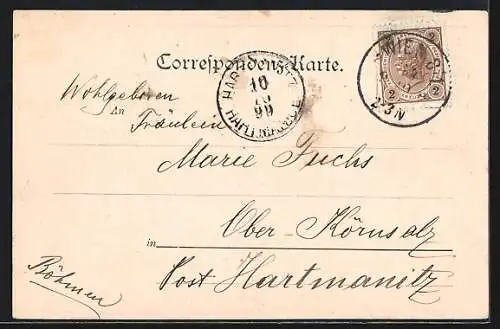 Correspondenz-Karte.
WIEN
2-3N
2 2
10
99
Wohlgeboren
An Fräulein
Marie Fuchs
Ober-Körnsalz
in Post Hartmanitz
Böhmen